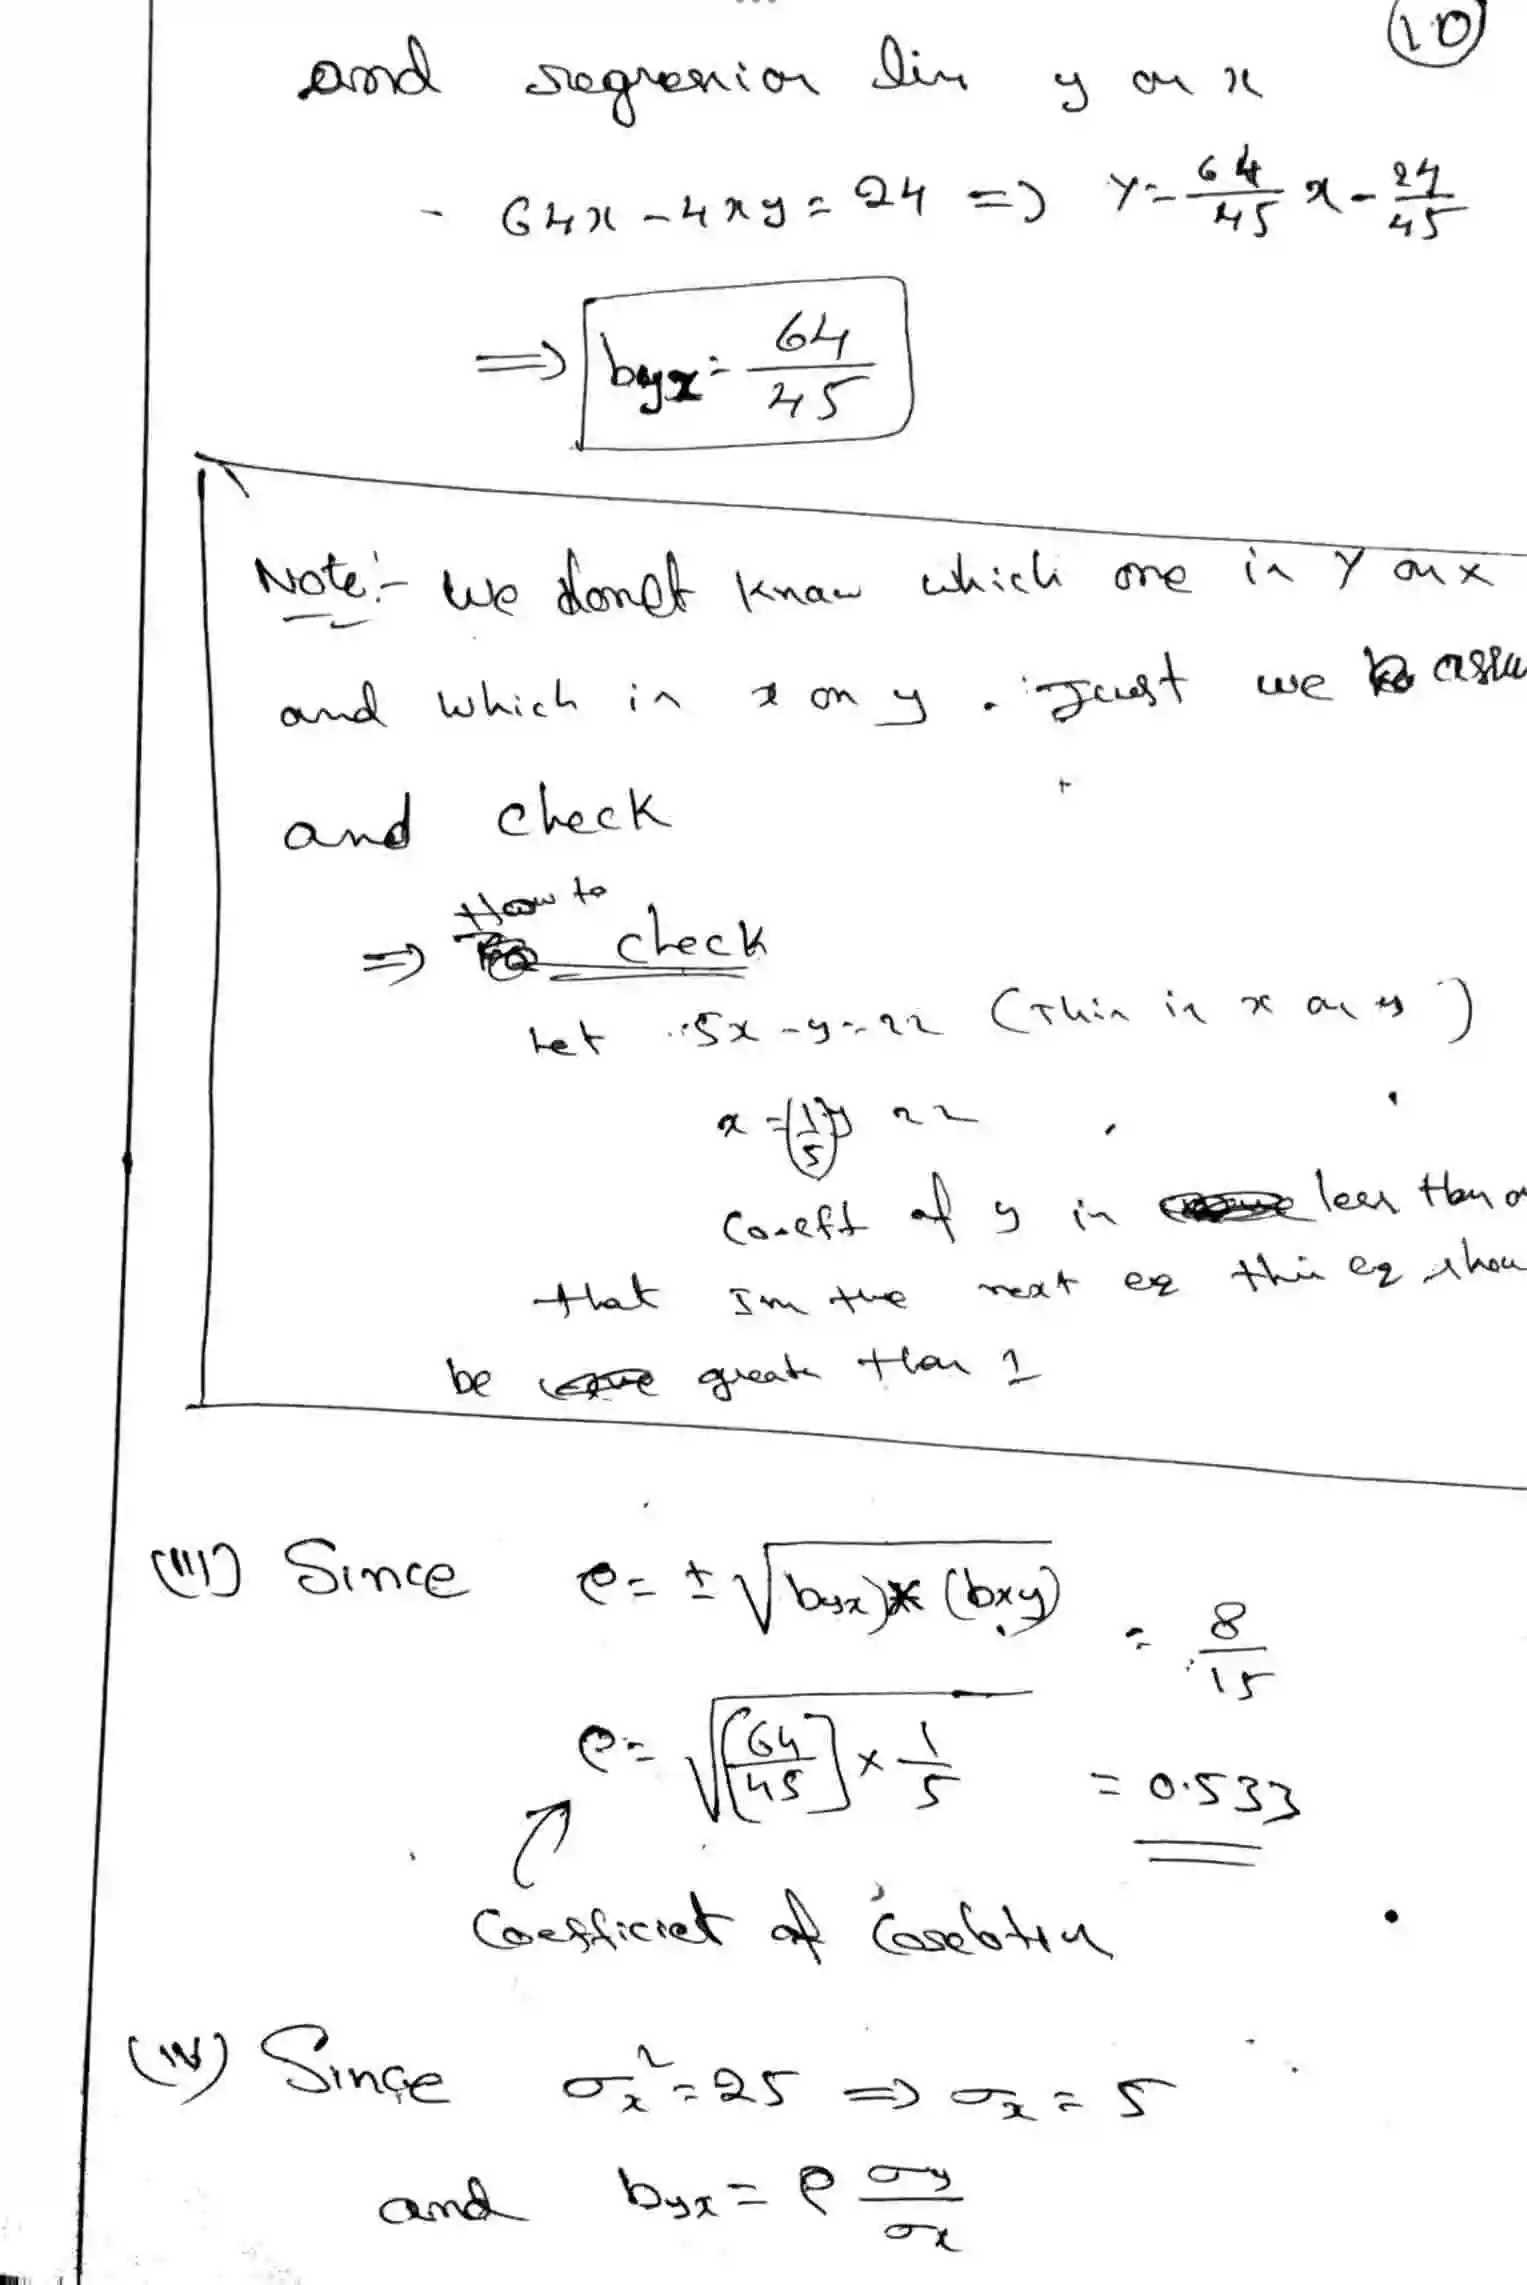 10
and regression line y on x
64x - 45y = 24 => y = 64/45 x - 24/45
=> byx = 64/45
Note:- We donot know which one is Y on x
and which is x on y. Just we assu
and check
=> How to check
Let 5x - y = 22 (This is x on y)
x = (1/5)y 22
Coeft of y is less than o
that Im the next eq this eq shou
be greate than 1
(III) Since ρ = ± √(byx) * (bxy) = 8/15
ρ = √[64/45] × 1/5 = 0.533
Coefficiet of Corelation
(IV) Since σx² = 25 => σx = 5
and byx = ρ σy/σx